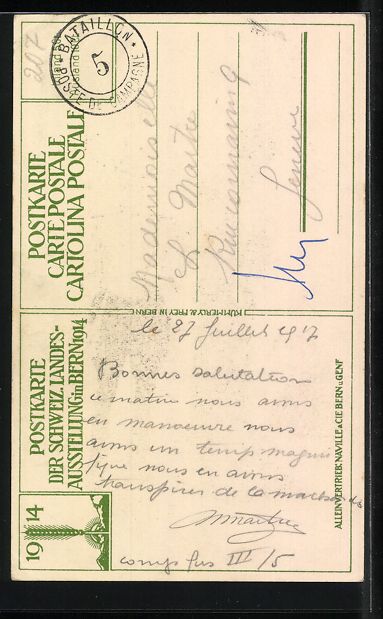 207
BATAILLON
5
POSTE DE CAMPAGNE
POSTKARTE
CARTE POSTALE
CARTOLINA POSTALE
Mademoiselle
Genève
KÜMMERLY & FREY IN BERN
POSTKARTE
DER SCHWEIZ. LANDES-
AUSSTELLUNG in BERN 1914
1914
le 27 Juillet 1917
Bonnes salutations
ce matin nous avons
en manoeuvre nous
avons un temps magni
fique nous en avons
transpirer de ca marche
comp fus III/5
ALLEINVERTRIEB: NAVILLE & CIE BERN u. GENF